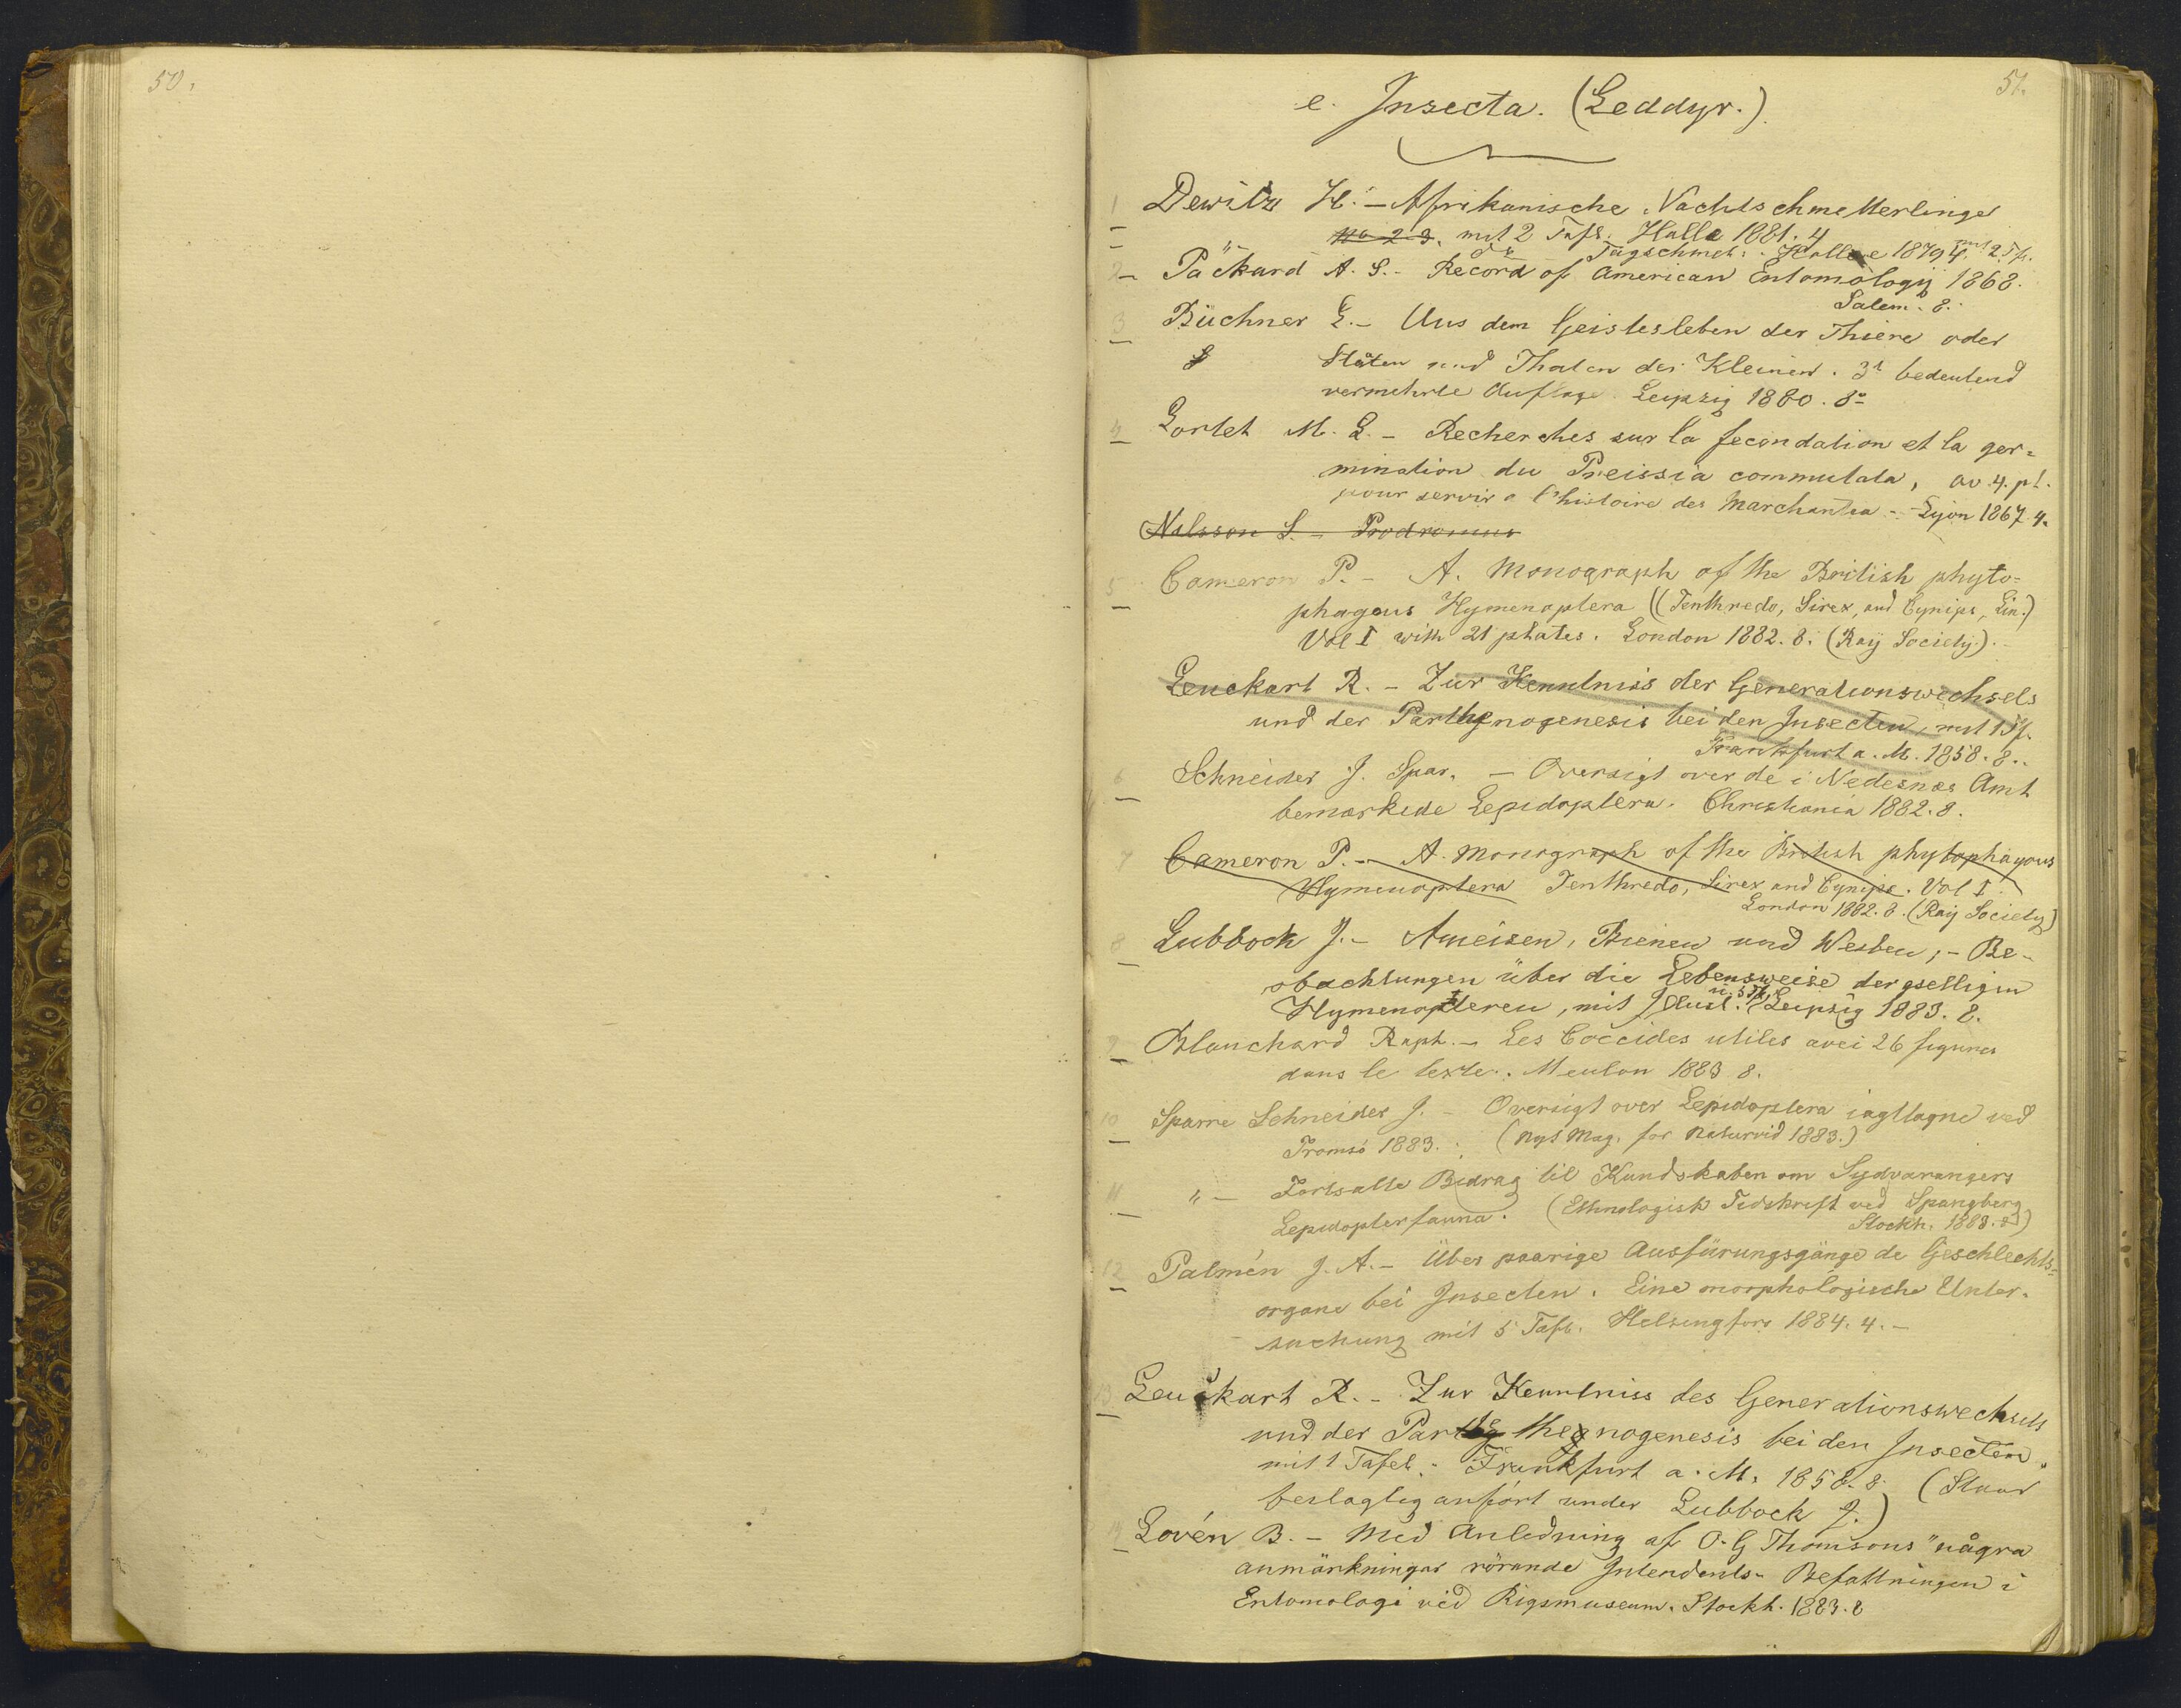 50.
51.
e. Insecta. (Leddyr.)
1 Dewitz H. – Afrikanische Nachtschmetterlinge
No 2-3. mit 2 Tafl. Halle 1881. 4
" – Tagschmet: . Halle 1879 4. mit 2 Tfl.
2 Packard A. S. – Record of American Entomology 1868.
Salem. 8.
3 Büchner L. – Aus dem Geistesleben der Thiere oder
Stäten und Thaten der Kleinen. 3t bedeutend
vermehrte Auflage. Leipzig 1880. 8o
4 Lortet M. L. – Recherches sur la fecondation et la ger=
mination du Preissia commutata, av. 4. pl.
pour servir a l'histoire des Marchantea – Lyon 1867 4.
Nilsson S. – Prodromus
5 Cameron P. – A. Monograph of the British phyto=
phagous Hymenoptera ((Tenthredo, Sirex, and Cynips, Lin.)
Vol I with 21 plates. London 1882. 8. (Ray Society).
Leuckart R. – Zur Kenntniss der Generationswechsels
und der Parthenogenesis bei den Insecten, mit 1 Tfl.
Frankfurt a. M. 1858. 8..
6 Schneider J. Spar. – Oversigt over de i Nedesnæs Amt
bemærkede Lepidoptera. Christiania 1882. 8.
7 Cameron P. – A. Monograph of the British phytophagous
Hymenoptera Tenthredo, Sirex and Cynips. Vol I
London 1882. 8. (Ray Society)
8 Lubbock J. – Ameisen, Bienen und Wesben, – Be-
obachtungen über die Lebensweise der geselligen
Hymenopteren, mit Illust. u. 5 Tfl. Leipzig 1883. 8.
9 Blanchard Raph. – Les Coccides utiles avec 26 figures
dans le texte. Meulon 1883 8.
10 Sparre Schneider J. – Oversigt over Lepidoptera iagttagne ved
Tromsö 1883. (Nyt Mag. for Naturvid 1883.)
11 " – Fortsatte Bidrag til Kundskaben om Sydvarangers
Lepidopterfauna. (Ethnologisk Tidskrift ved Spangberg
Stockh. 1883. 8)
12 Palmén J. A. – Über paarige Ausfürungsgänge de Geschlechts=
organe bei Insecten. Eine morphologische Unter-
suchung mit 5 Tafl. Helsingfors 1884. 4. –
13 Leuckart R. – Zur Kenntniss des Generationswechsels
und der Parthenogenesis bei den Insecten.
mit 1 Tafel. Frankfurt a. M. 1858. 8. (Staar
beslaglig anfört under Lubbock J.)
14 Lovén B. – Med Anledning af O. G Thomsons "några
anmärkningar rörande Intendents- Befattningen i
Entomologi vid Rigsmuseum. Stockh. 1883. 8